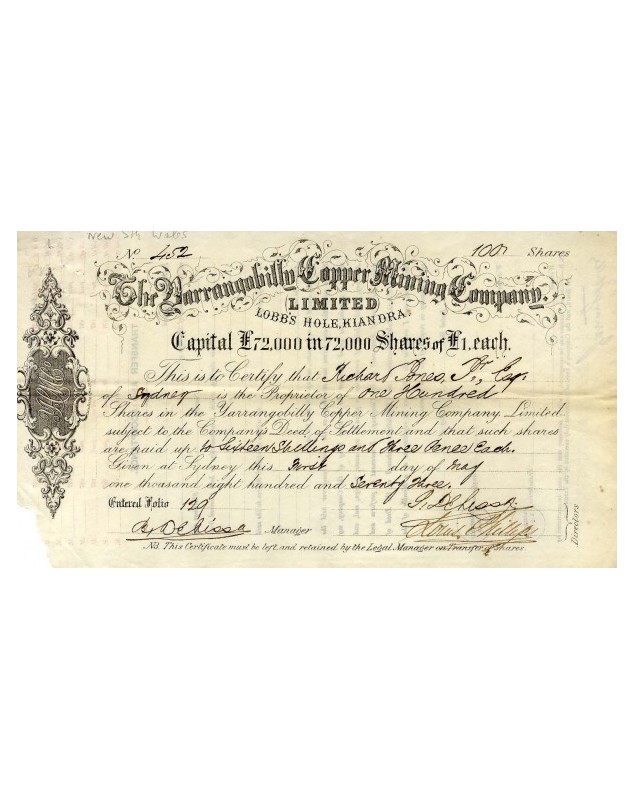 New Sth Wales
No 452 100 Shares
The Yarrangobilly Copper Mining Company.
LIMITED
LOBB'S HOLE, KIANDRA.
Capital £72,000 in 72,000 Shares of £1. each.
This is to Certify that Richard Jones, Jr., Esq.
of Sydney is the Proprietor of One Hundred
Shares in the Yarrangobilly Copper Mining Company, Limited
subject to the Company's Deed of Settlement and that such shares
are paid up to Sixteen Shillings and three Pence Each.
Given at Sydney this First day of May
one thousand eight hundred and Seventy Three.
Entered Folio 129
Manager
Louis Phillips
Directors
NB. This Certificate must be left and retained by the Legal Manager on Transfer of Shares.